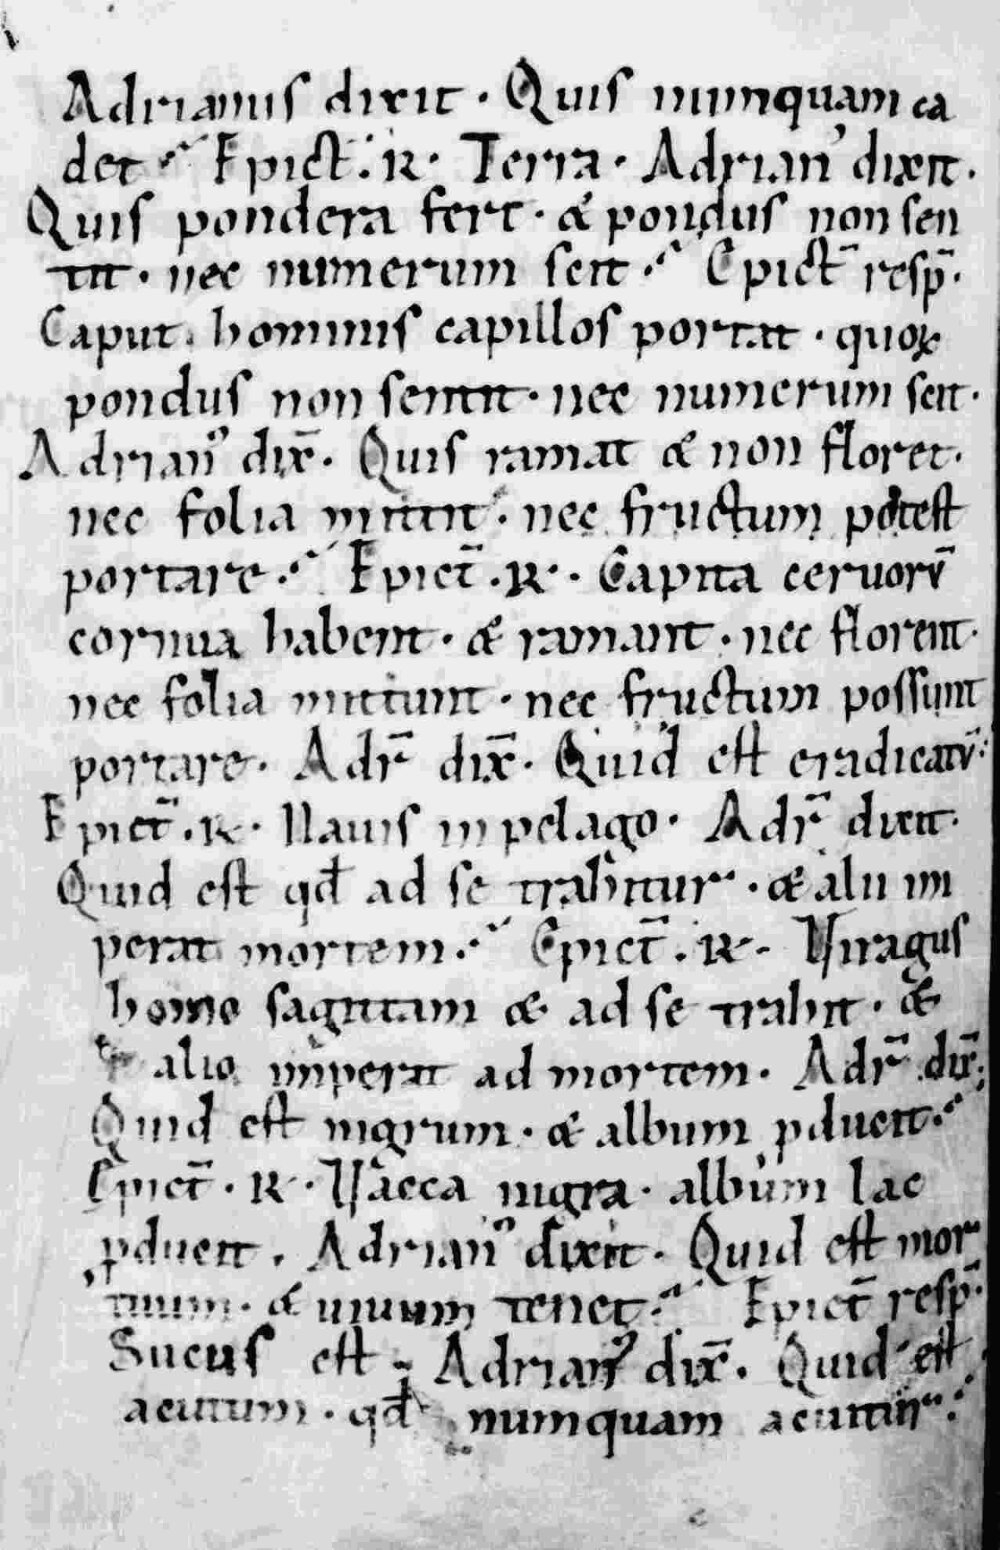 Adrianus dixit · Quis numquam ca
det ·՜ Epict̄ : R · Terra · Adrian᾽ dixit ·
Quis pondera fert · & pondus non sen
tit · nec numerum scit ·՜ Epict̄ resp̄ ·
Caput hominis capillos portat · quoꝝ
pondus non sentit · nec numerum scit ·
Adrian᾽ dix̄ · Quis ramat & non floret ·
nec folia mittit · nec fructum potest
portare ·՜ Epict̄ · R · Capita ceruorū
cornua habent · & ramant · nec florent ·
nec folia mittunt · nec fructum possunt
portare · Adr̄ dix̄ · Quid est eradicatū ·՜
Epict̄ · R · Nauis in pelago · Adr̄ dixit ·
Quid est qđ ad se trahitur · & alii im
perat mortem ·՜ Epict̄ · R · Viragus
homo sagittam & ad se trahit · &
alio imperat ad mortem · Adr̄ dix̄ ;
Quid est nigrum · & album ꝓducit ·՜
Epict̄ · R · Vacca nigra · album lac
ꝓducit · Adrian᾽ dixit · Quid est mor
tuum · & uiuum tenet ·՜ Epict̄ resp̄ ·
Sucus est · Adrian᾽ dix̄ · Quid est
acutum · qđ numquam acuitur ·՜